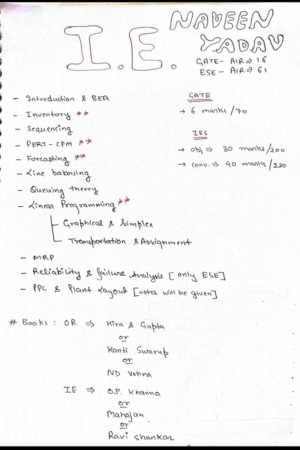 I.E.
NAVEEN
YADAV
GATE- AIR → 16
ESE - AIR → 61
- Introduction & BEA
- Inventory **
- Sequencing
- PERT-CPM **
- Forcasting **
- Line balancing
- Queuing theory
- Linear Programming **
Graphical & Simplex
Transportation & Assignment
- MRP
- Reliability & failure Analysis [only ESE]
- PPC & Plant Layout [notes will be given]
GATE
→ 6 marks/70
IES
→ obj ⇒ 30 marks/200
→ conv. ⇒ 40 marks/
# Books : OR ⇒ Hira & Gupta
or
Kanti Swarup
or
ND Vohra
IE ⇒ O.P. Khanna
or
Mahajan
or
Ravi Shankar